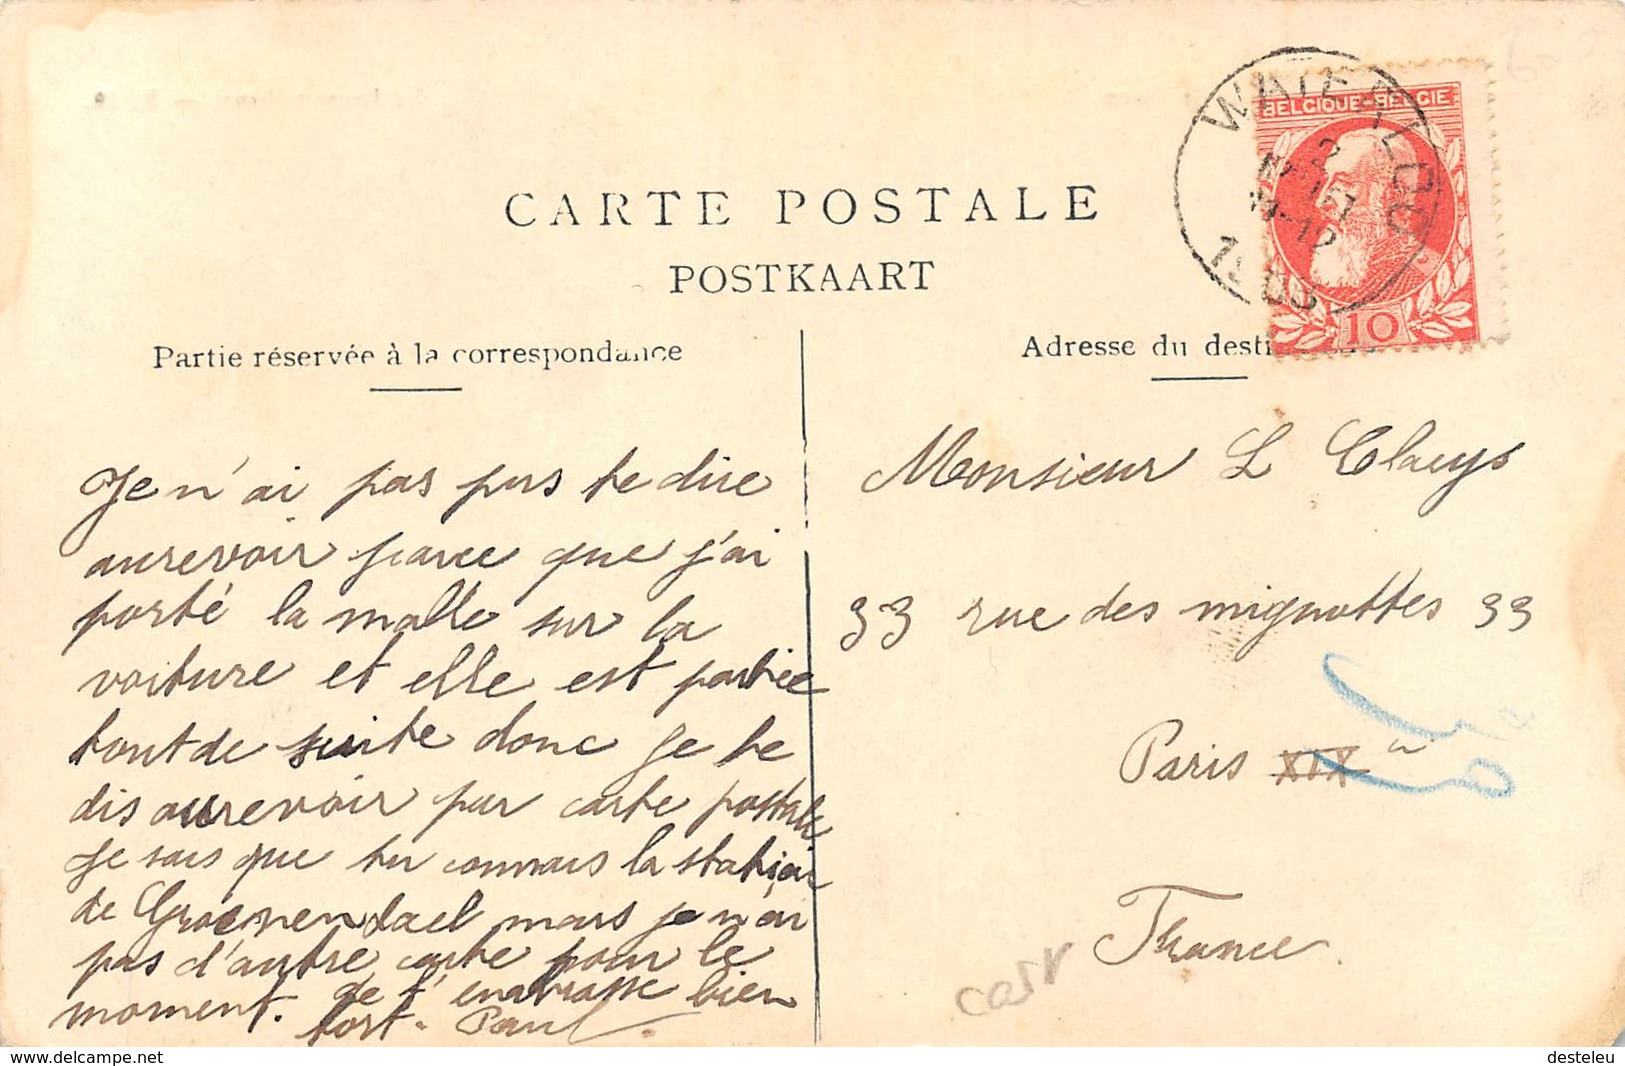 CARTE POSTALE
POSTKAART
WATERLOO
2
11-12
BELGIQUE-BELGIE
10
Partie réservée à la correspondance
Adresse du desti
Je n'ai pas pus te dire
aurevoir parce que j'ai
porté la malle sur la
voiture et elle est partie
tout de suite donc je te
dis aurevoir par carte postale
je sais que tu connais la station
de Groenendael mais je n'ai
pas d'autre carte pour le
moment. Je t'embrasse bien
fort. Paul.
Monsieur L Claeys
33 rue des mignottes 33
Paris XIX
France.
cast
www.delcampe.net
desteleu